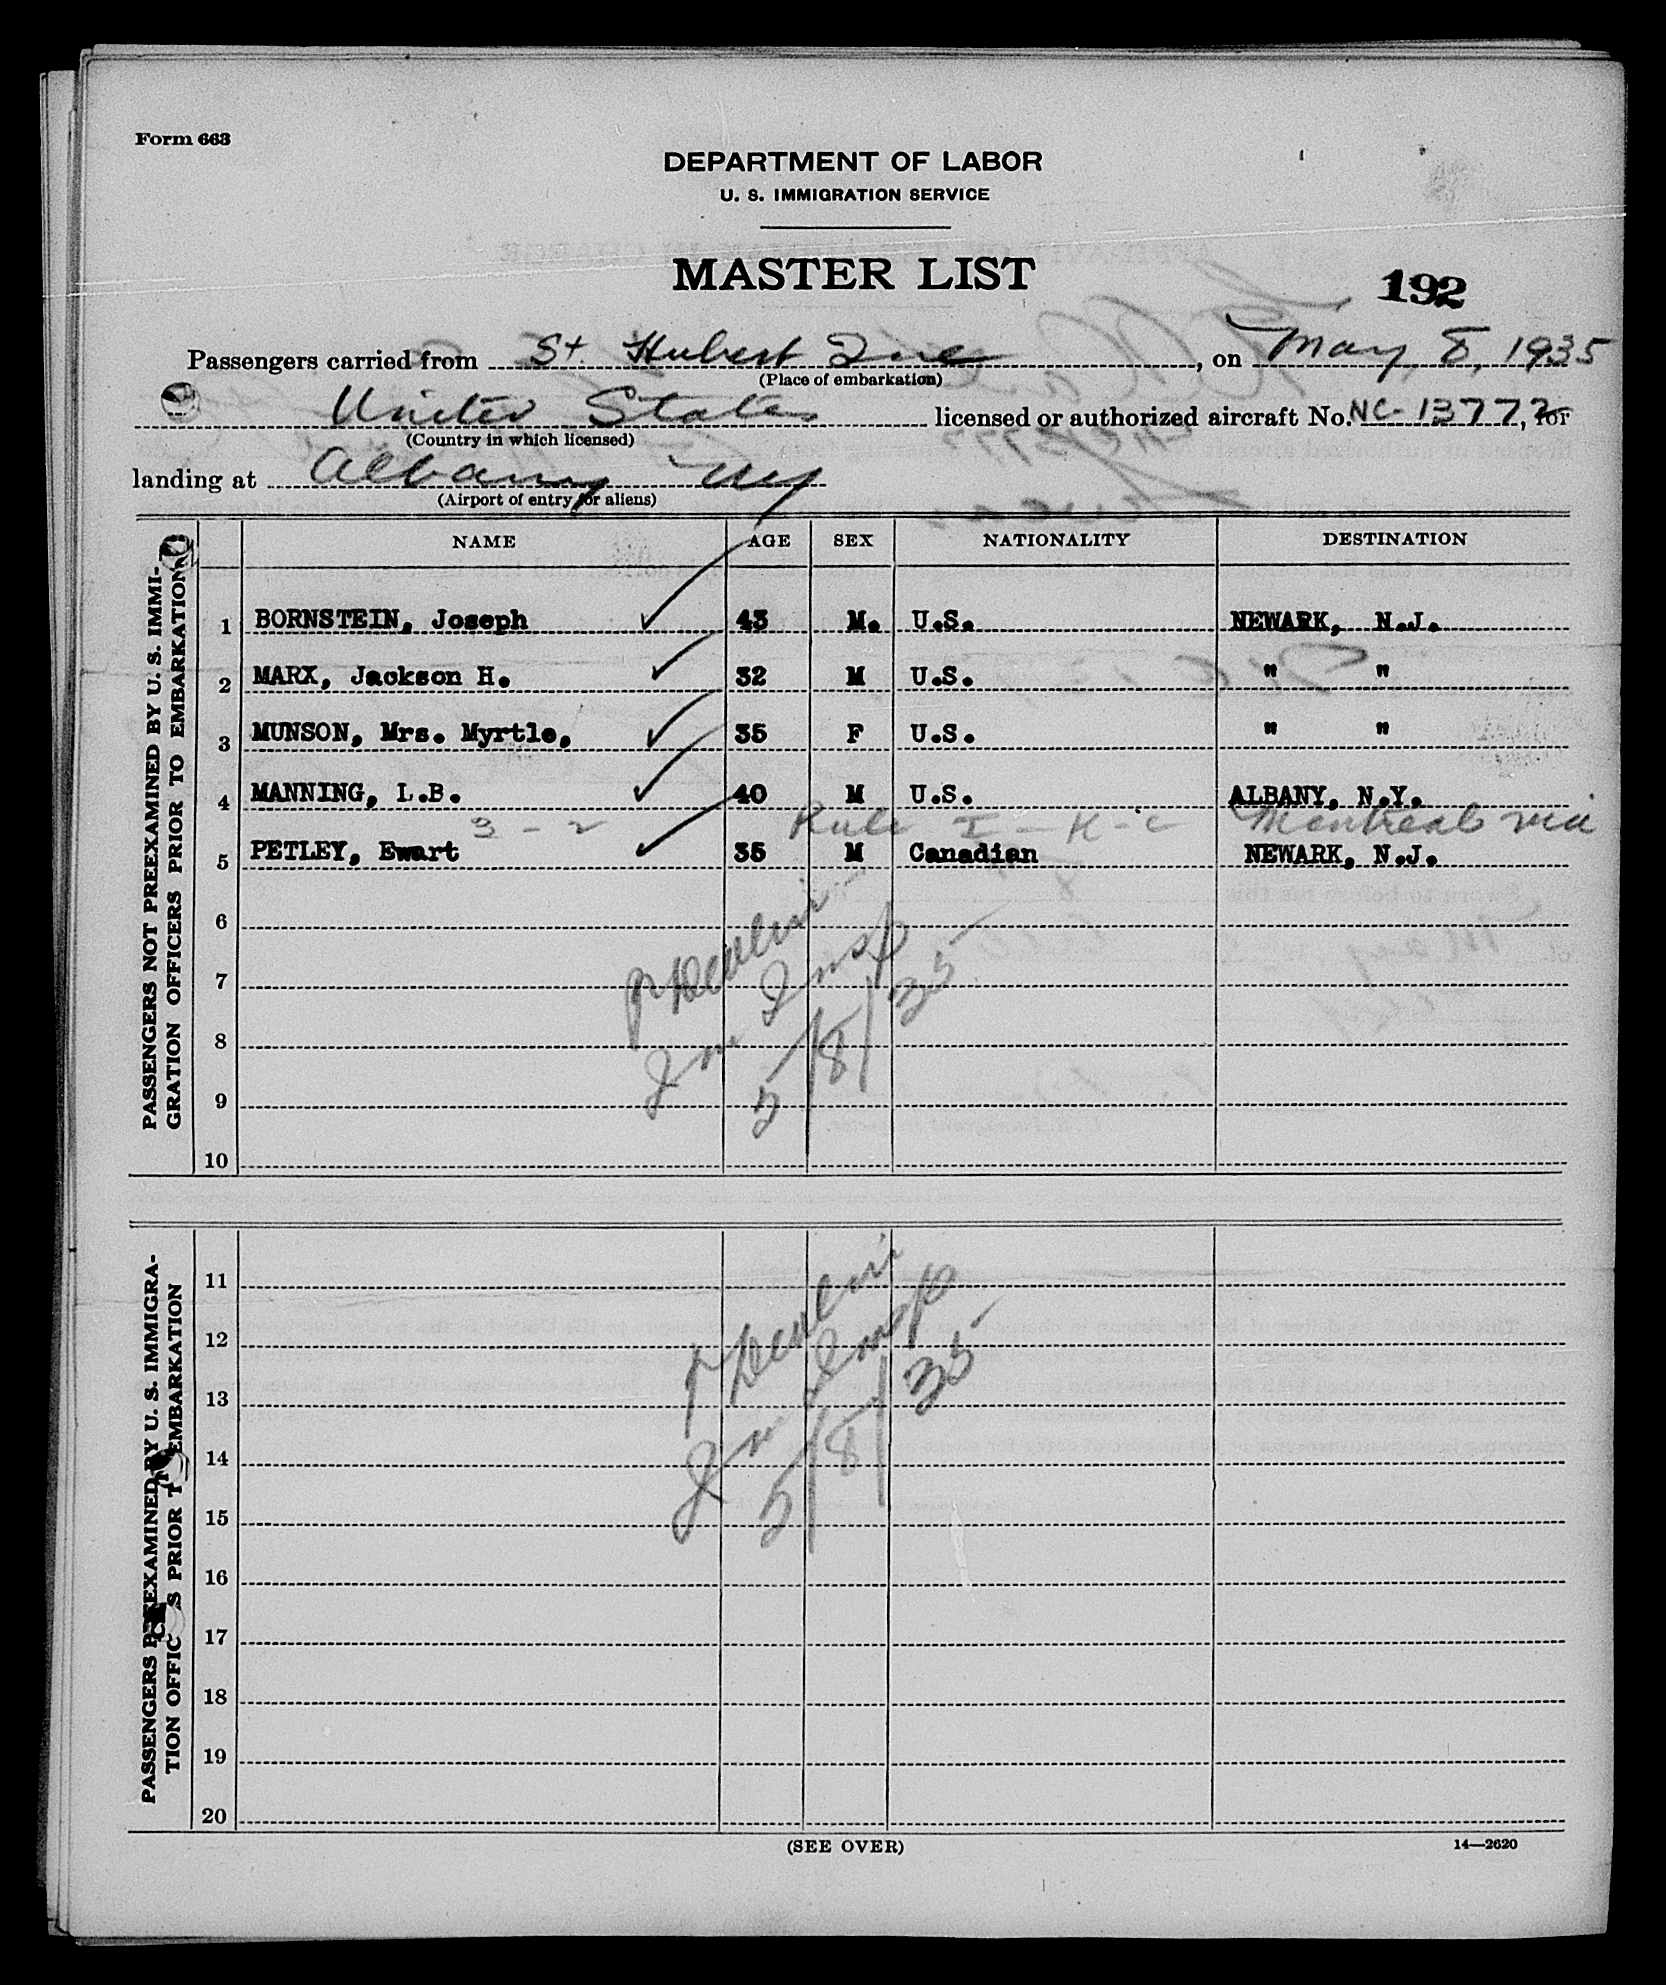 Form 663
DEPARTMENT OF LABOR
U. S. IMMIGRATION SERVICE
MASTER LIST
192
Passengers carried from St. Hubert Que, on May 8, 1935
(Place of embarkation)
United States licensed or authorized aircraft No. NC-13777, for
(Country in which licensed)
landing at Albany NY
(Airport of entry for aliens)
PASSENGERS NOT PREEXAMINED BY U. S. IMMI-
GRATION OFFICERS PRIOR TO EMBARKATION
NAME AGE SEX NATIONALITY DESTINATION
1 BORNSTEIN, Joseph 43 M. U.S. NEWARK, N.J.
2 MARX, Jackson H. 32 M U.S. " "
3 MUNSON, Mrs. Myrtle, 35 F U.S. " "
4 MANNING, L.B. 40 M U.S. ALBANY, N.Y.
3 - 2 Rule I - K - c Montreal via
5 PETLEY, Ewart 35 M Canadian NEWARK, N.J.
6
7
8
9
10
Imm Insp
5/8/35
PASSENGERS PREEXAMINED BY U. S. IMMIGRA-
TION OFFIC S PRIOR T EMBARKATION
11
12
13
14
15
16
17
18
19
20
Imm Insp
5/8/35
(SEE OVER)
14—2620